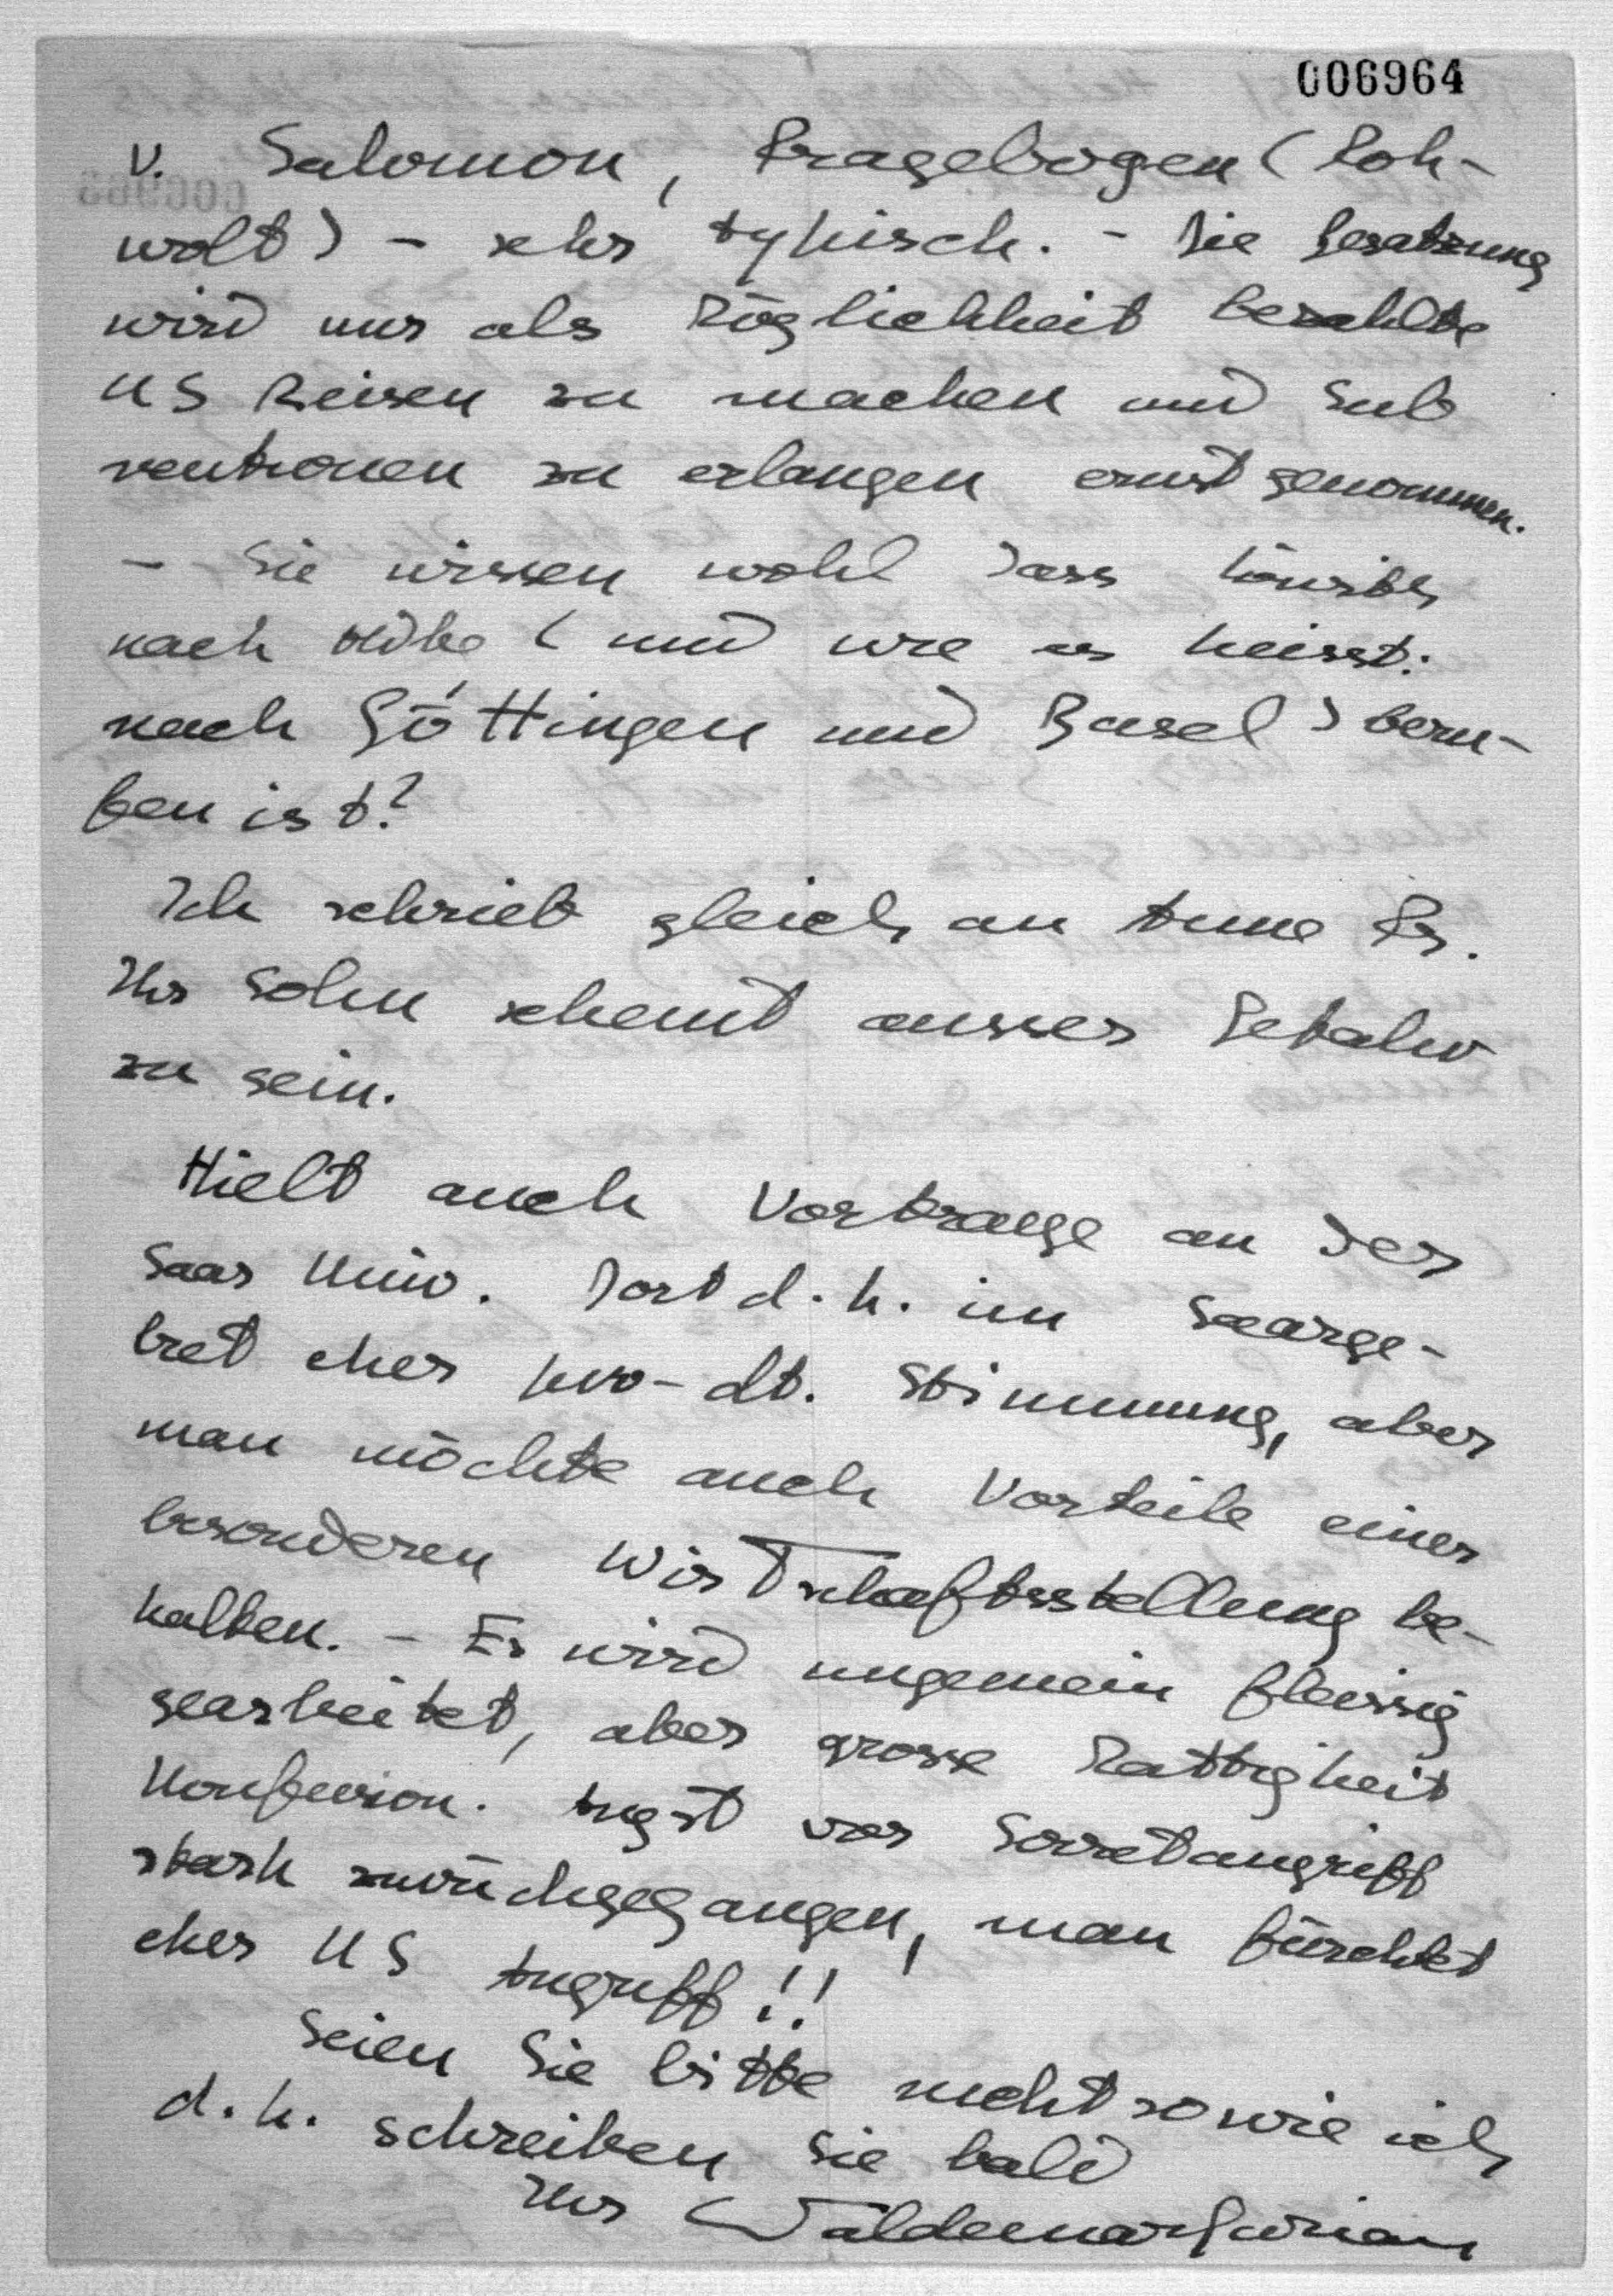 006964
v. Salomon, Fragebogen (Roh-
wolt) - sehr typisch. - Die Besatzung
wird nur als Möglichkeit bezahlte
US Reisen zu machen und Sub
ventionen zu erlangen ernst genommen.
- Sie wissen wohl dass Löwith
nach Hdbg (und wie es heisst:
nach Göttingen und Basel) beru-
fen ist?
Ich schrieb gleich an Anne Fr.
Ihr Sohn scheint ausser Gefahr
zu sein.
Hielt auch Vortraege an der
Saar Univ. Dort d.h. im Saarge-
biet eher pro-dt. Stimmung, aber
man möchte auch Vorteile einer
besonderen Wirtschaftsstellung be-
halten. - Es wird ungemein fleissig
gearbeitet, aber grosse
Konfusion. Angst vor Sovietangriff
stark zurückgegangen, man fürchtet
eher US Angriff!!
Seien Sie bitte nicht so wie ich
d.h. schreiben Sie bald
Ihr Waldemar Gurian